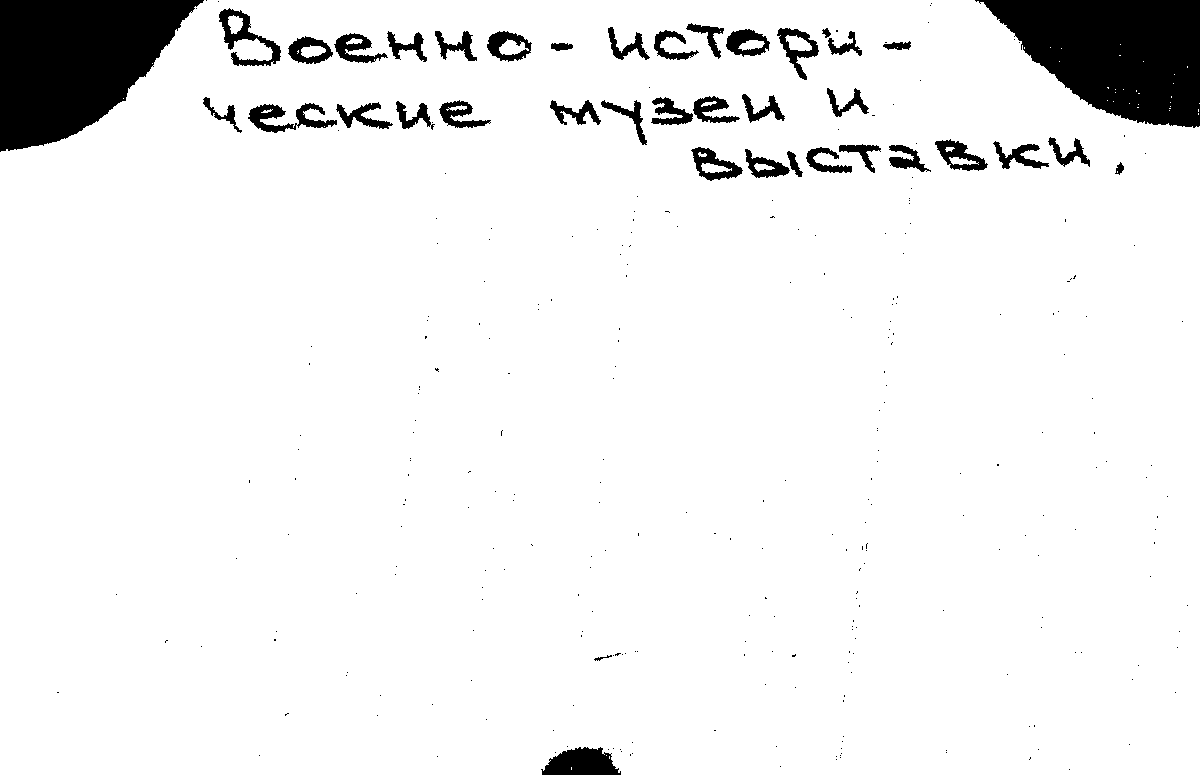 Военно-истори-
ческие музеи и
выставки.